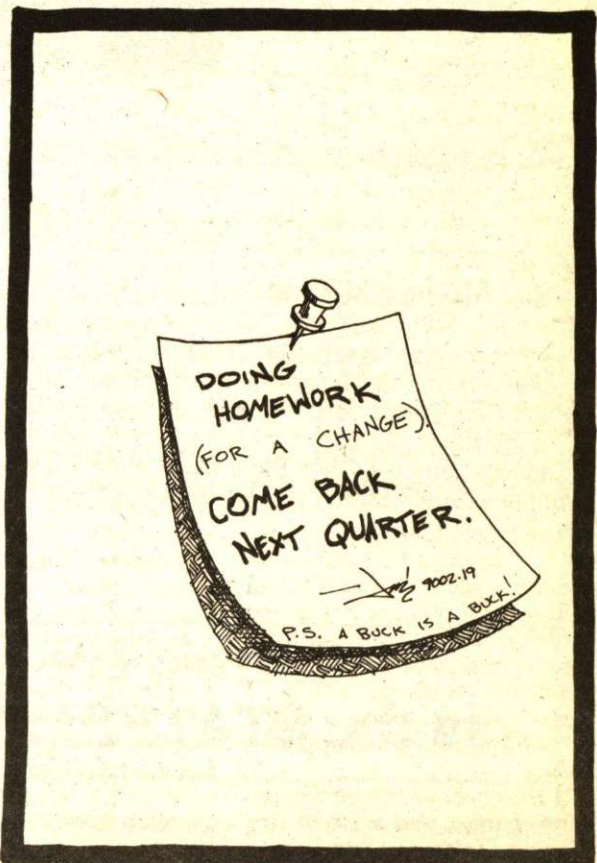 DOING
HOMEWORK
(FOR A CHANGE).
COME BACK
NEXT QUARTER.
9002.19
P.S. A BUCK IS A BUCK!